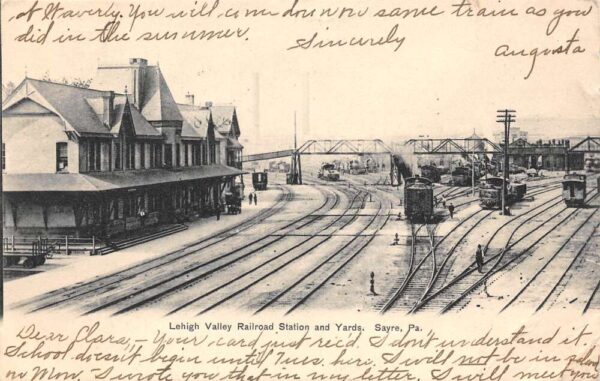 at Waverly. You will come down on same train as you
did in the summer.
Sincerely
Augusta
Lehigh Valley Railroad Station and Yards. Sayre, Pa.
Dear Clara, - Your card just rec'd. I don't understand it.
School doesn't begin until Tues, here. I will not be in
on Mon. I wrote you that in my letter. I will meet you